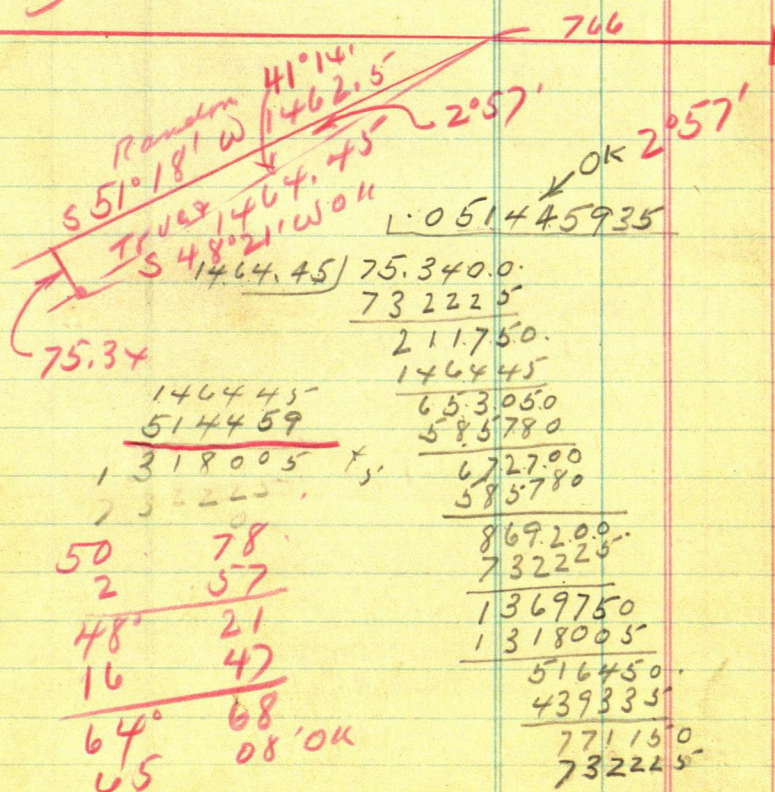 766
41°14'
Random 1462.5
S 51°18' W
2°57'
2°57'
True 1464.45
S 48°21' W OK
OK
.0514445935
1464.45 ) 75.3400.
732225
211750.
146445
653050
585780
672700
585780
869200.
732225
1369750
1318005
516450.
439335
771150
732225
75.34
146445
514459
1318005
732225
50 78
2 57
48° 21
16 47
64° 68
08' OK
65